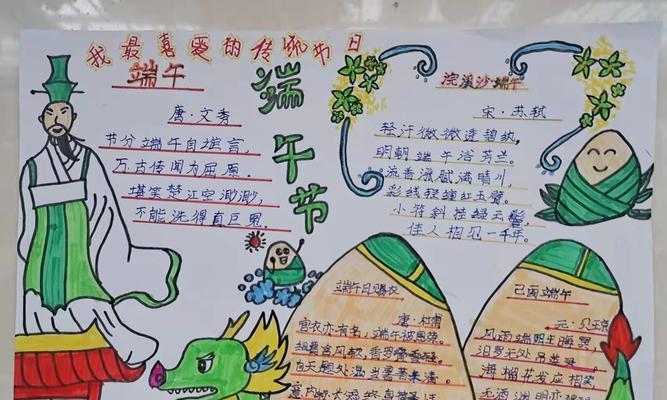 我最喜爱的传统节日
端午
唐·文秀
节分端午自谁言,
万古传闻为屈原。
堪笑楚江空渺渺,
不能洗得直臣冤。
端午节
浣溪沙端午
宋·苏轼
轻汗微微透碧纨,
明朝端午浴芳兰。
流香涨腻满晴川,
彩线轻缠红玉臂。
小符斜挂绿云鬟,
佳人相见一千年。
端午日赐衣
唐·杜甫
宫衣亦有名,端午被恩荣。
细葛含风软,香罗叠雪轻。
自天题处湿,当暑著来清。
意内称长短,终身荷圣
己酉端午
元·贝琼
风雨端阳生晦冥,
汨罗无处吊英灵。
海榴花发应相笑,
无酒渊明亦